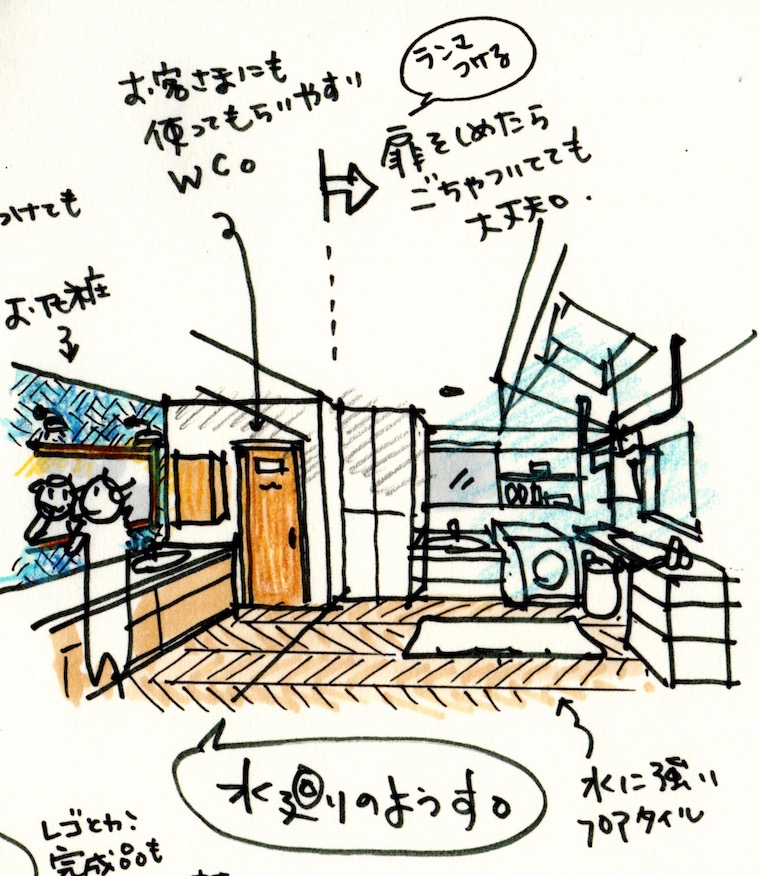 ランマ
つける
お客さまにも
使ってもらいやすい
WC。
扉をしめたら
ごちゃついてても
大丈夫。
つけても
お化粧
水廻りのようす。
水に強い
フロアタイル
レゴとか、
完成品も